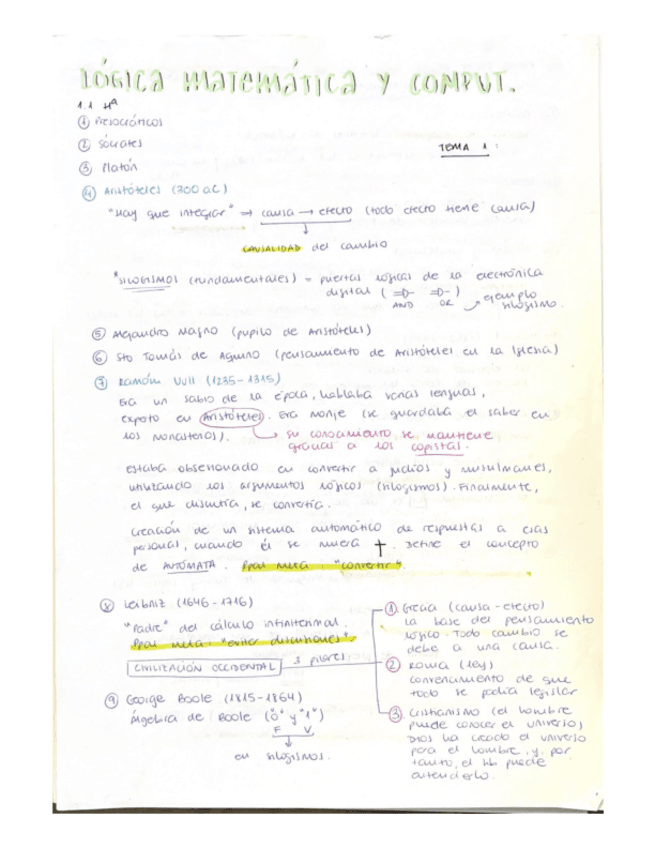 LÓGICA MATEMÁTICA Y COMPUT.
1.1 Hª
① Presocráticos
② Sócrates
TEMA 1:
③ Platón
④ Aristóteles (300 a.C)
"Hay que integrar" ⇒ causa → efecto (todo efecto tiene causa)
CAUSALIDAD del cambio
*SILOGISMOS (fundamentales) = puertas lógicas de la electrónica
digital (
AND OR
ejemplo
silogismo.
⑤ Alejandro Magno (pupilo de Aristóteles)
⑥ Sto Tomás de Aquino (pensamiento de Aristóteles en la Iglesia)
⑦ Ramón Llull (1235-1315)
Era un sabio de la época, hablaba varias lenguas,
experto en Aristóteles. Era monje (se guardaba el saber en
los monasterios).
su conocimiento se mantiene
gracias a los copistas.
estaba obsesionado en convertir a judíos y musulmanes,
utilizando los argumentos lógicos (silogismos). Finalmente,
el que discutía, se convertía.
Creación de un sistema automático de respuestas a esas
personas, cuando él se muera ✝. Define el concepto
de AUTÓMATA. Ppal meta: "convertir".
⑧ Leibniz (1646-1716)
"Padre" del cálculo infinitesimal.
Ppal meta: "evitar discusiones".
CIVILIZACIÓN OCCIDENTAL 3 pilares
① Grecia (causa-efecto)
la base del pensamiento
lógico. Todo cambio se
debe a una causa.
② Roma (ley)
convencimiento de que
todo se podía legislar
③ Cristianismo (el hombre
puede conocer el universo,
Dios ha creado el universo
para el hombre, y, por
tanto, el hb puede
entenderlo.
⑨ George Boole (1815-1864)
álgebra de Boole ("0" y "1")
F V
en silogismos.